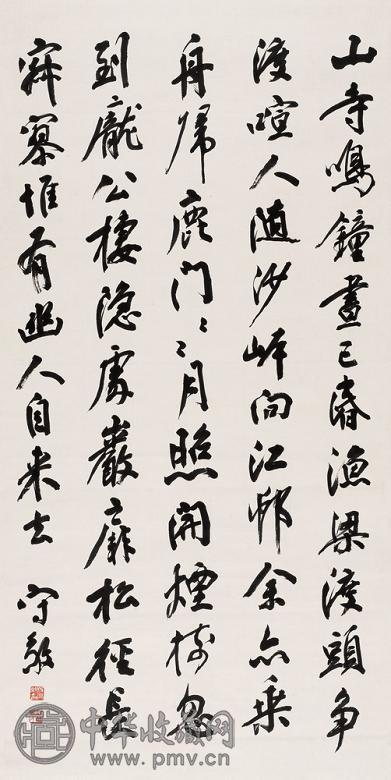 山寺鳴鐘晝已昏漁梁渡頭争
渡喧人随沙岸向江邨余亦乗
舟歸鹿門〻月照開煙樹忽
到龐公棲隐處巖扉松徑長
寂寥惟有幽人自来去 守敬
中华收藏网
www.pmv.cn